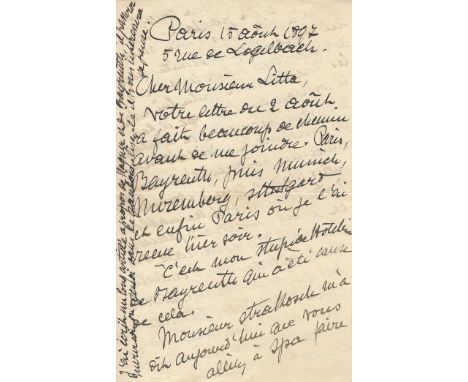 Paris 15 août 1897
5 rue de Logelbach.
Cher Monsieur Litta,
Votre lettre du 2 août
a fait beaucoup de chemin
avant de me joindre. Paris,
Bayreuth, puis Munich,
Nuremberg, Stuttgard
et enfin Paris où je l'ai
reçue hier soir.
C'est mon stupide hôtelier
de Bayreuth qui a été cause
de cela.
Monsieur Strakosch m'a
dit aujourd'hui que vous
alliez à Spa faire
J'ai écrit un long article à propos de